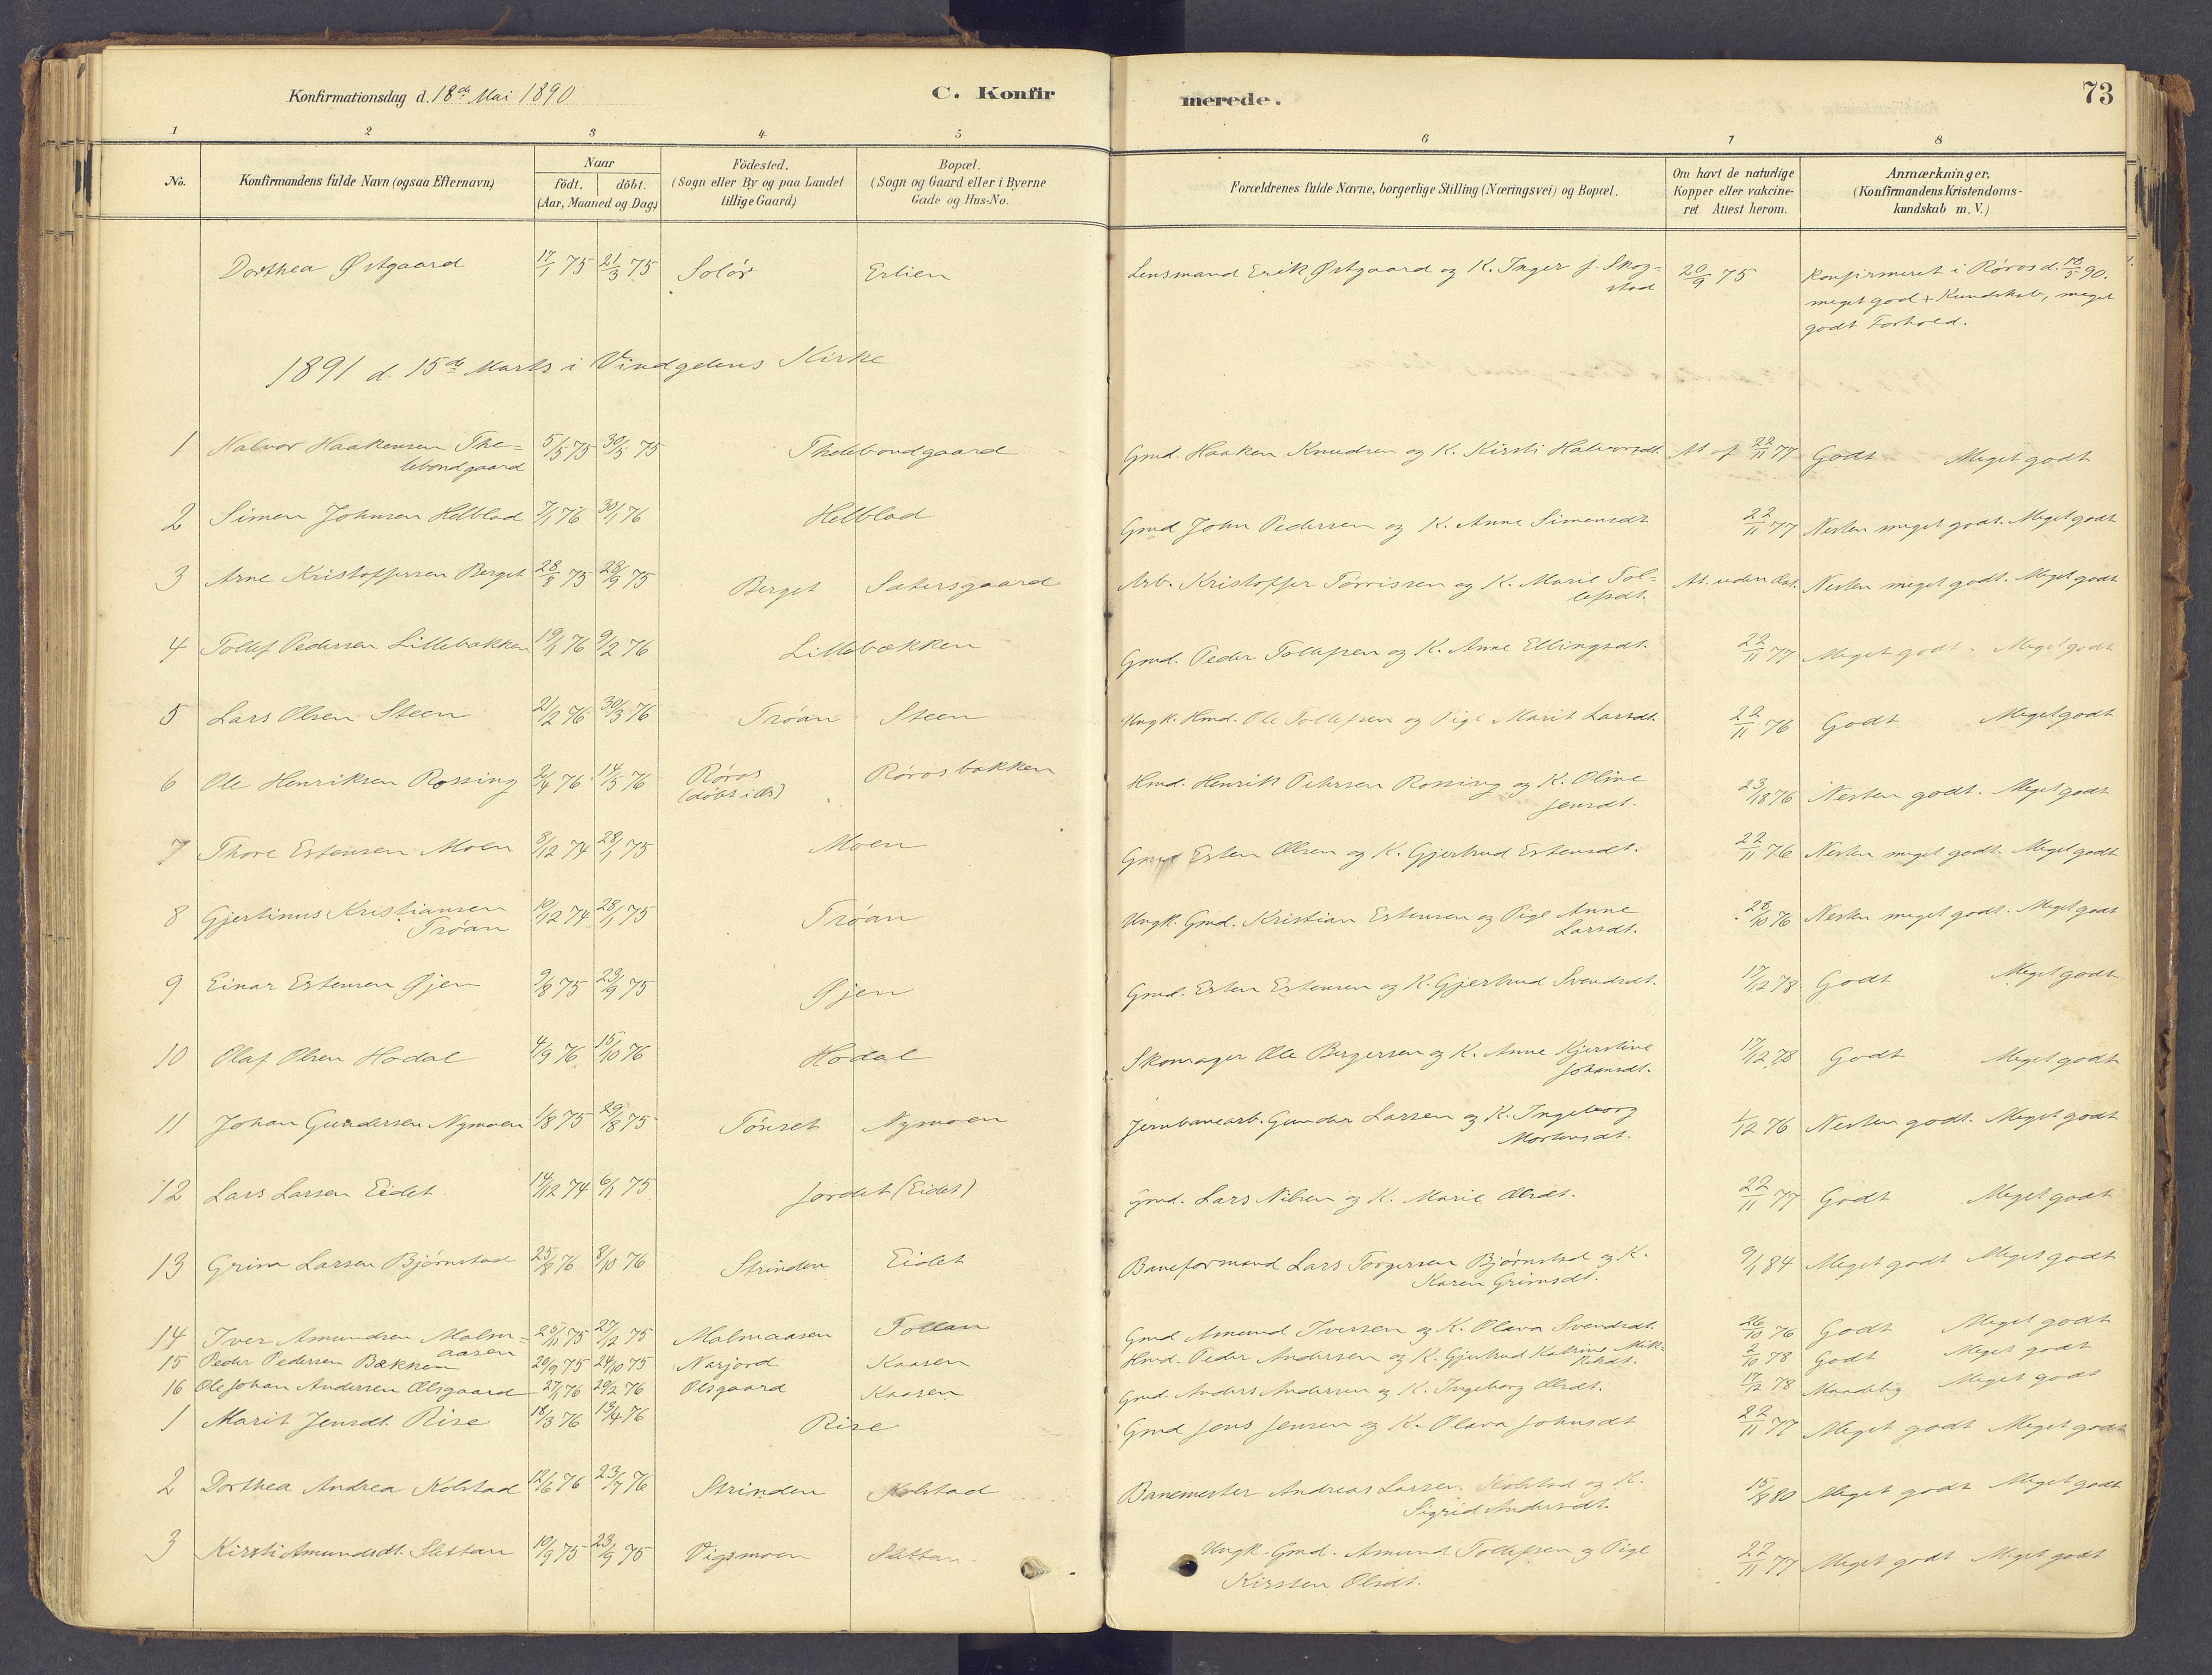 Konfirmationsdag d. 18de Mai 1890 C. Konfirmerede. 73
1 2 3 4 5 6 7 8
No. Konfirmandens fulde Navn (ogsaa Efternavn) Naar födt. döbt. (Aar, Maaned og Dag) Födested. (Sogn eller By og paa Landet tillige Gaard) Bopæl. (Sogn og Gaard eller i Byerne Gade og Hus-No. Forældrenes fulde Navne, borgerlige Stilling (Næringsvei) og Bopæl. Om havt de naturlige Kopper eller vakcineret Attest herom. Anmærkninger. (Konfirmandens Kristendomskundskab m. V.)
Dorthea Østgaard 17/1 75 21/3 75 Solör Erlien Lensmand Erik Østgaard og K. Inger f. Skogstad 20/9 75 Konfirmeret i Røros d. 18/5 90. meget god + Kundskab, meget godt Forhold.
1891 d. 15de Marts i Vindgelens Kirke
1 Halvor Haakensen Thelebondgaard 5/5 75 30/5 75 Thelebondgaard Gmd. Haaken Knudsen og K. Kirsti Halvorsdt. At af 22/11 77 Godt Meget godt
2 Simen Johnsen Helblad 7/1 76 30/1 76 Helblad Gmd John Pedersen og K. Anne Simensdt 22/11 77 Nesten meget godt. Meget godt
3 Arne Kristoffersen Berget 28/8 75 28/9 75 Berget Sætersgaard Arb. Kristoffer Torrissen og K. Marie Tollefsdt. At. uden Dat. Nesten meget godt. Meget godt
4 Tollef Pedersen Lillebakken 19/1 76 9/2 76 Lillebækken Gmd. Peder Tollefsen og K. Anne Ellingsdt. 22/11 77 Meget godt. Meget godt
5 Lars Olsen Steen 2/2 76 30/3 76 Tröan Steen Ungk. Hmd. Ole Tollefsen og Pige Marit Larsdt. 22/11 76 Godt Meget godt
6 Ole Henriksen Rossing 2/4 76 14/5 76 Röros (döbt i Os) Rörosbakken Hmd. Henrik Petersen Rossing og K. Oline Jensdt. 23/18 76 Nesten godt. Meget godt
7 Thore Estensen Moen 8/12 74 28/1 75 Moen Gmd Esten Olsen og K. Gjertrud Estensdt. 22/11 76 Nesten meget godt. Meget godt
8 Gjertinus Kristiansen Tröan 10/12 74 28/1 75 Tröan Ungk. Gmd. Kristian Estensen og Pige Anne Larsdt. 28/10 76 Nesten meget godt. Meget godt
9 Einar Estensen Øjen 9/8 75 23/9 75 Øjen Gmd. Esten Estensen og K. Gjertrud Svendsdt. 17/12 78 Godt Meget godt
10 Olaf Olsen Hodal 4/9 76 15/10 76 Hodal Skomager Ole Bergersen og K. Anne Kjerstine Johansdt. 17/12 78 Godt Meget godt
11 Johan Gundersen Nymoen 1/8 75 29/8 75 Tönset Nymoen Jernbanearb. Gunder Larsen og K. Ingeborg Mortensdt. 1/12 76 Nesten godt. Meget godt
12 Lars Larsen Eidet 14/12 74 6/1 75 Jordet (Eidet) Gmd. Lars Nilsen og K. Marie Olsdt. 22/11 77 Godt Meget godt
13 Grim Larsen Bjørnstad 25/8 76 8/10 76 Strinden Eidet Baneformand Lars Torgersen Bjørnstad og K. Karen Grimsdt. 9/1 84 Meget godt Meget godt
14 Iver Amundsen Malmaasen 25/11 75 27/12 75 Malmaasen Tollan Gmd Amund Iversen og K. Olava Svendsdt. 26/10 76 Godt Meget godt
15 Peder Pedersen Bakken 20/9 75 24/10 75 Narjord Kaasen Hmd. Peder Andersen og K. Gjertrud Katrine Mikkelsdt. 2/10 78 Godt Meget godt
16 Ole Johan Andersen Olsgaard 27/1 76 20/2 76 Olsgaard Kaasen Gmd. Anders Andersen og K. Ingeborg Olsdt. 17/12 78 Maadelig Meget godt
1 Marit Jensdt. Rise 18/3 76 13/4 76 Rise Gmd Jens Jensen og K. Olava Johnsdt 22/11 77 Meget godt Meget godt
2 Dorthea Andrea Kolstad 12/6 76 23/7 76 Strinden Kolstad Banemester Andreas Larsen Kolstad og K. Sigrid Andersdt. 15/8 80 Meget godt Meget godt
3 Kirsti Amundsdt. Slettan 10/9 75 23/9 75 Vigsmoen Slettan. Ungk. Gmd. Amund Tollefsen og Pige Kirsten Olsdt. 22/11 77 Meget godt Meget godt